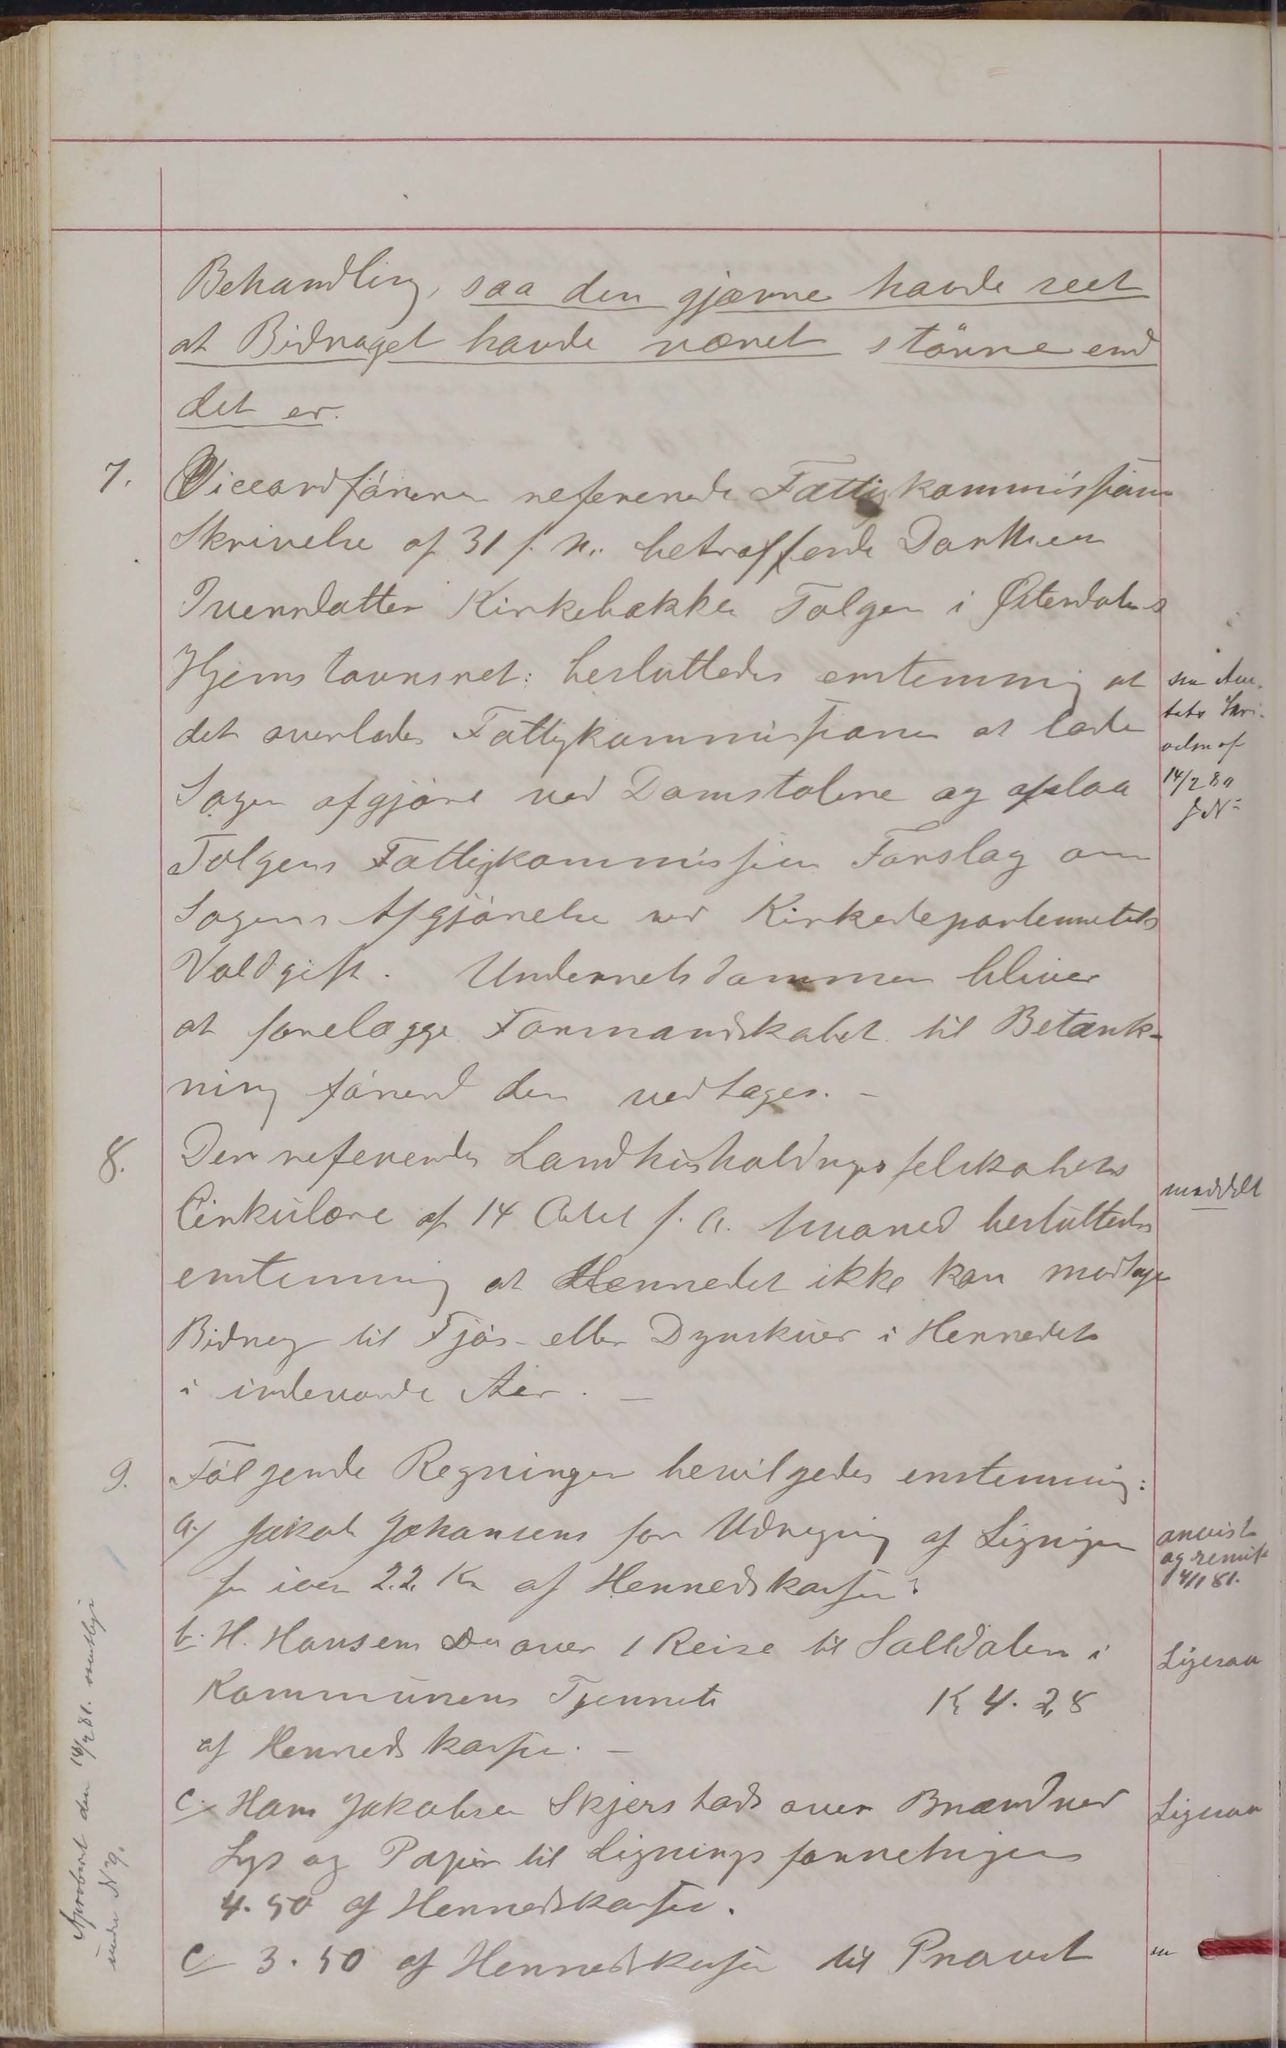 Behandling, saa den gjærne havde seet
at Bidraget havde været større end
det er.
7. Viceordføreren refererede Fattigkommissjonens
Skrivelse af 31 f. M. betræffende Dorthea
Iversdatter Kirkebakken Tolgen i Østerdalens
Hjemstavnsret: besluttedes enstemmig at
det overlades Fattigkommissionen at lade
Sagen afgjøre ved Domstolene og afslaa
Tolgens Fattigkommission Forslag om
Sagens Afgjørelse ved Kirkedepartementets
Voldgift. Underretsdommen bliver
at forelægge Formandskabet til Betænk-
ning førend den vedtages. -
se Am-
tets Skri-
velse af
14/2 80
J N:
8. Der refereredes Landhusholdningsselskabets
Cirkulære af 14 Octbr f. A. hvorved besluttedes
enstemmig at Herredet ikke kan modtage
Bidrag til Fjøs- eller Dyrskuer i Herredet
i indeværende Aar. -
meddelt
9. Følgende Regninger bevilgedes enstemmig:
a/ Jakob Johansens for Udregning af Ligningen
for iaar 22 Kr af Herredskassen.
anvist
og remit
14/1 81.
b. H. Hansens Do over 1 Reise til Saltdalen i
Kommunens Tjeneste Kr 4.28
af Herredskassen. -
Ligesaa
c. Hans Jakobsen Skjerstads over Brændved
Lys og Papir til Ligningsforretningen
4.50 af Herredskassen.
Ligesaa
c 3.50 af Herredskassen til Provst
"
Aprobert den 14/2 81. samtlige
under N 9.